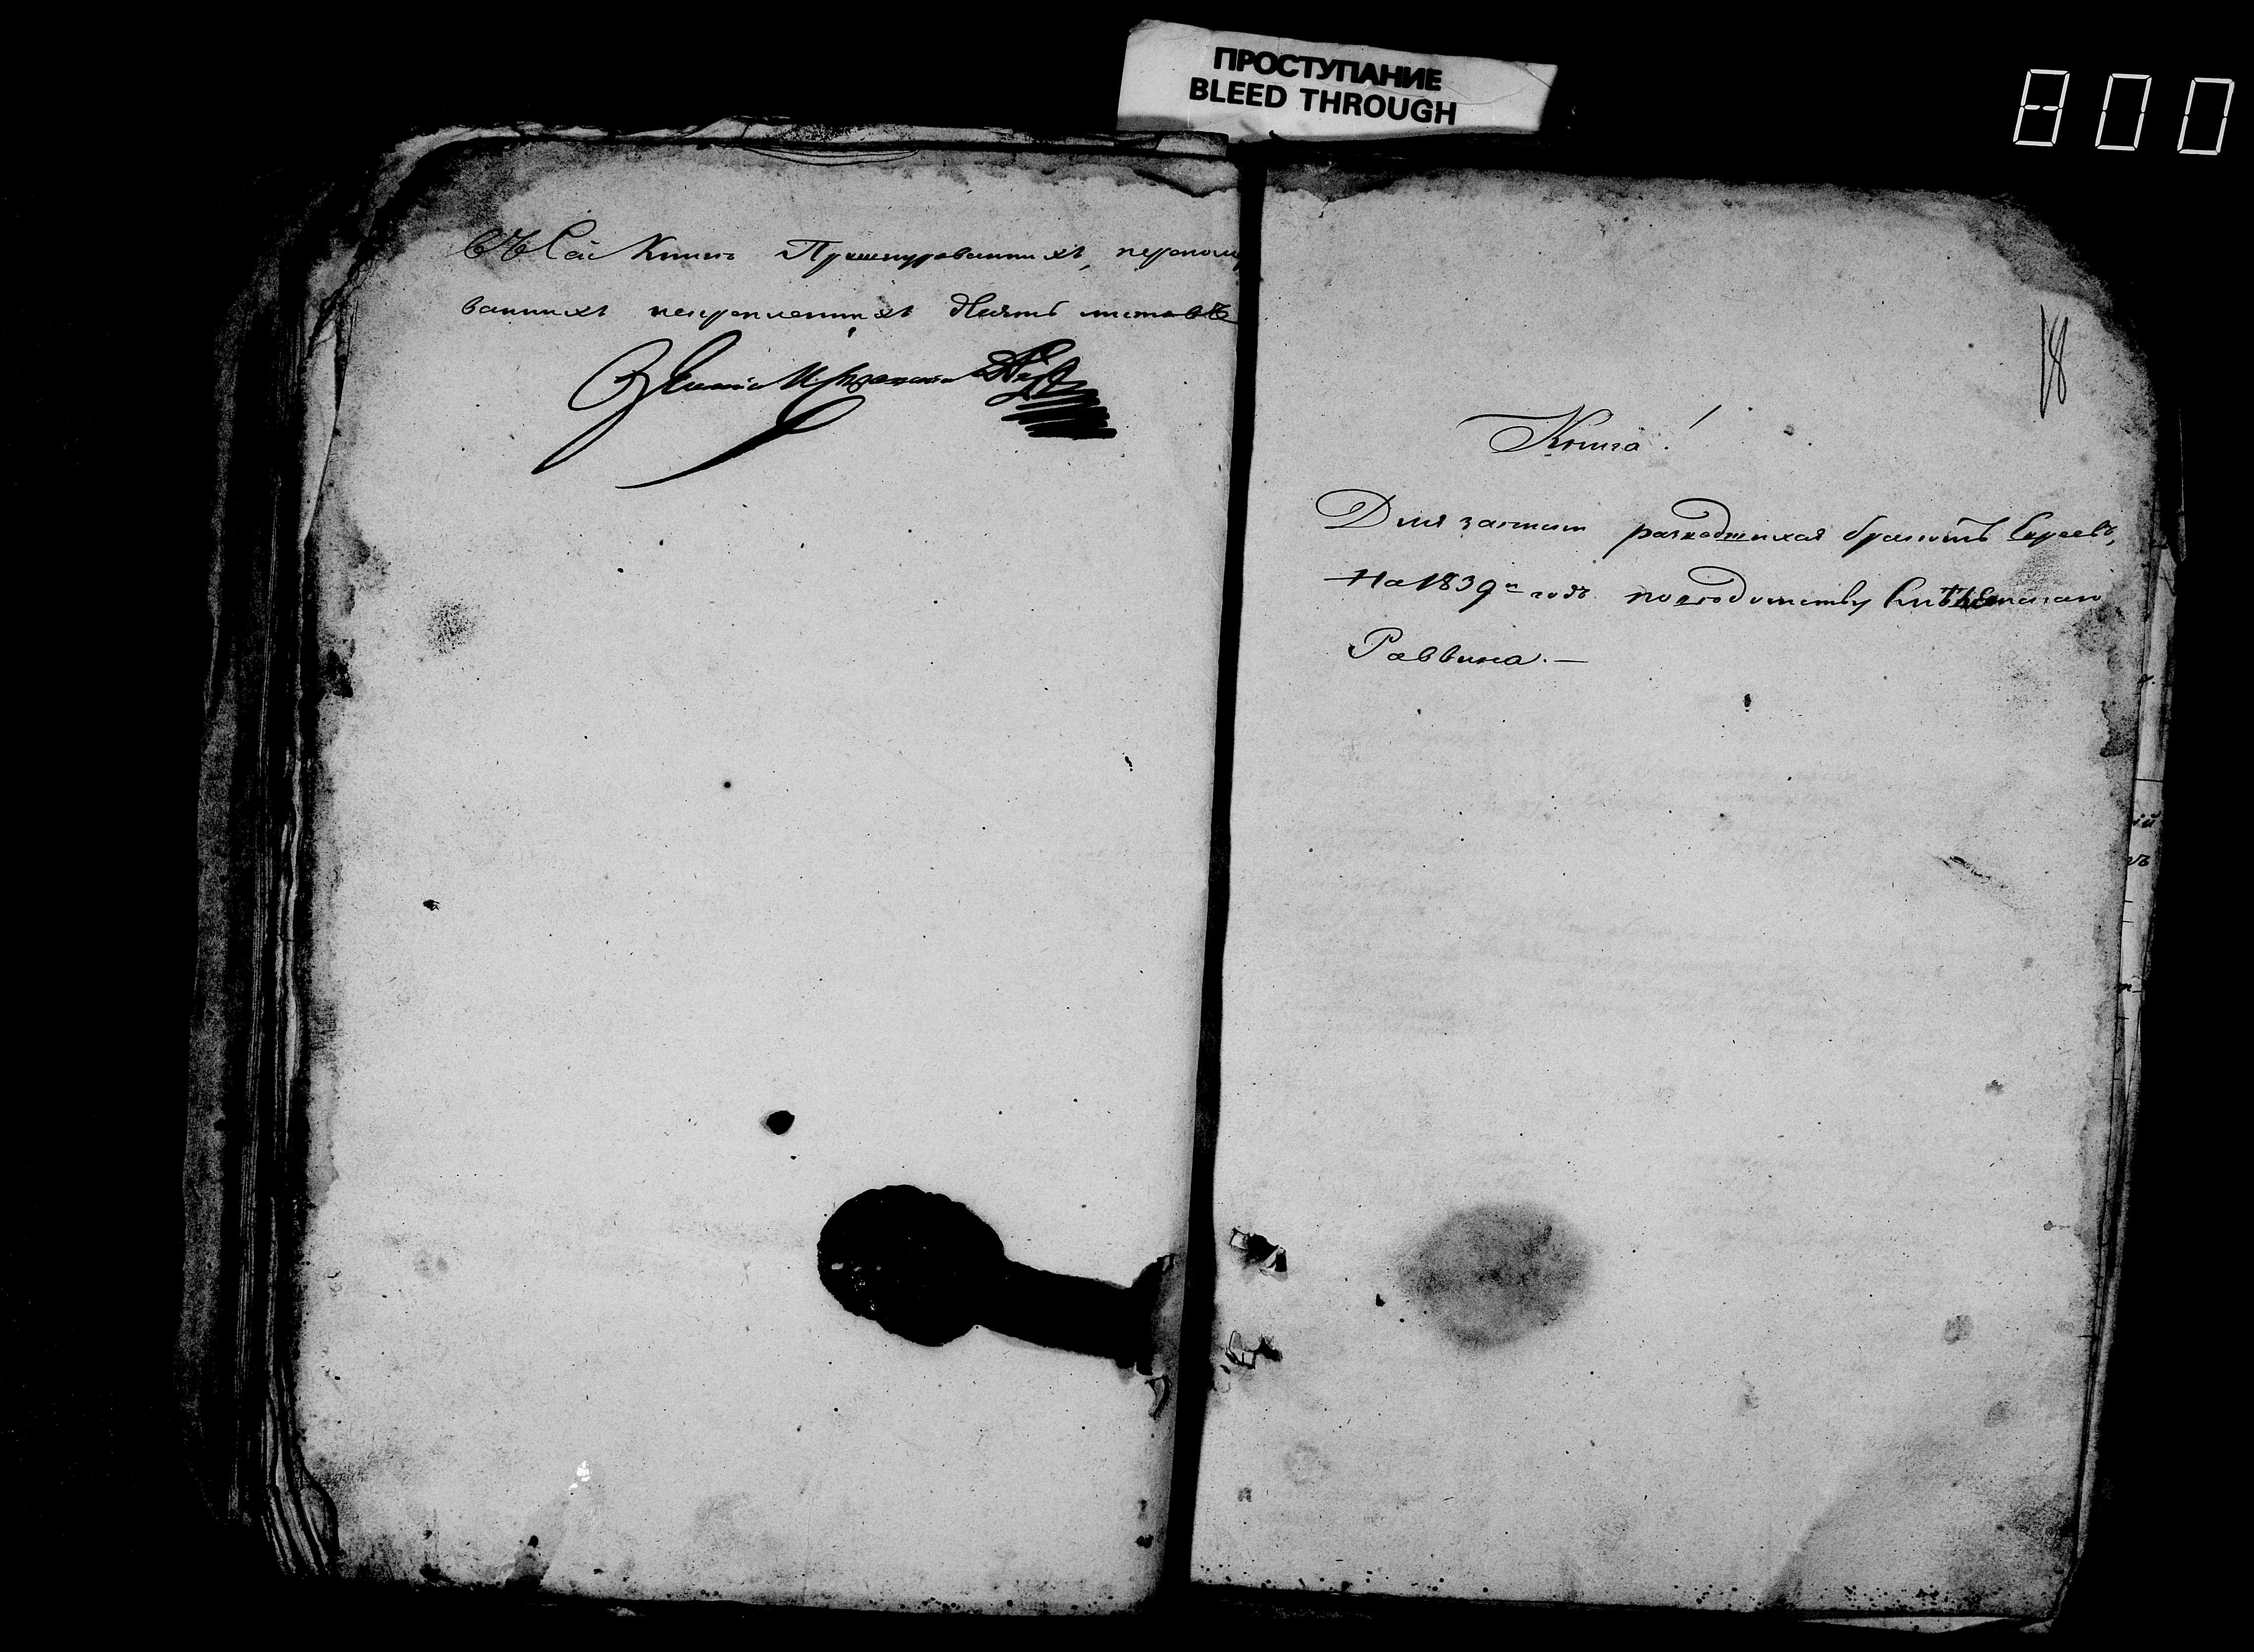 ПРОСТУПАНИЕ
BLEED THROUGH
800
Въ Сей Книгѣ Прошнурованныхъ, переному
ванныхъ искрепленныхъ Пять листовъ
18
Книга!
Для записи разводшихся бракомъ Евреевъ,
На 1839й годъ по вѣдомству
Раввина.—